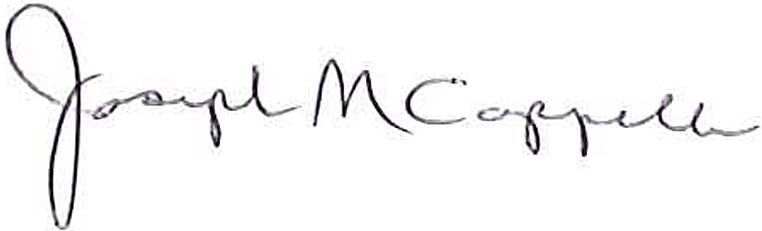 Joseph M Cappelli